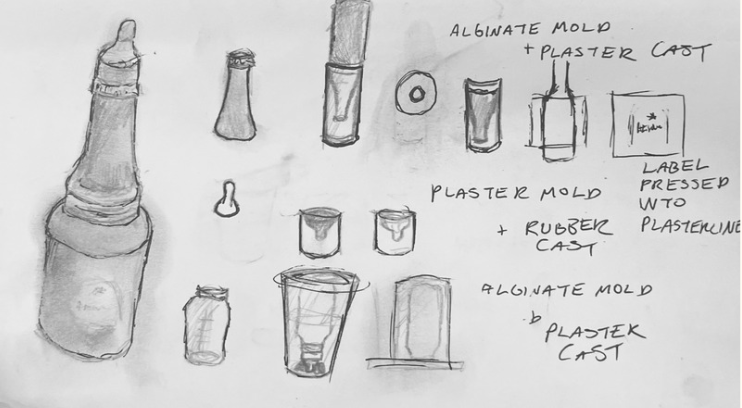 ALGINATE MOLD
+ PLASTER CAST
LABEL
PRESSED
INTO
PLASTERLINE
PLASTER MOLD
+ RUBBER
CAST
ALGINATE MOLD
PLASTER
CAST